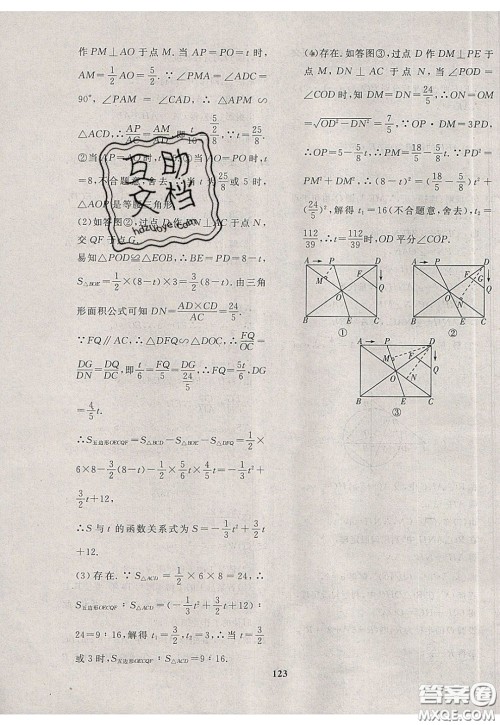 作 PM⊥AO 于点 M. 当 AP＝PO＝t 时,
AM＝1/2 AO＝5/2. ∵∠PMA＝∠ADC＝
90°, ∠PAM ＝ ∠CAD, ∴ △APM ∽
△ACD, ∴AP/AC＝AM/AD, 即 ∴t＝25/8.
②当 AP＝AO 时, t＝5. ③ 时, t
＝8, 不合题意, 舍去. ∴当 t 为 25/8 或 5 时,
△AOP 是等腰三角形.
(2)如答图②, 过点 D 作 DN⊥AC 于点 N,
交 QF 于点 G.
易知△POD≌△EOB, ∴BE＝PD＝8－t,
∴S△BOE＝1/2×(8－t)×3＝3/2(8－t). 由三角
形面积公式可知 DN＝AD×CD/AC＝24/5.
∵FQ∥AC, ∴△DFQ∽△DOC, ∴FQ/OC＝
DG/DN＝DQ/DC, 即 t/6＝DG/(24/5), ∴FQ＝5t/6, DG＝
4/5 t.
∴S五边形OECQF＝S△BCD－S△BOE－S△DFQ＝1/2
×6×8－3/2(8－t)－1/2×5/6 t×4/5 t＝－1/3 t²＋
3/2 t＋12.
∴S 与 t 的函数关系式为 S＝－1/3 t²＋3/2 t
＋12.
(3)存在. ∵S△ACD＝1/2×6×8＝24, ∴
S五边形OECQF∶S△ACD＝(－1/3 t²＋3/2 t＋12)∶
24＝9∶16, 解得 t₁＝3/2, t₂＝3, ∴当 t＝3/2
或 3 时, S五边形OECQF∶S△ACD＝9∶16.
(4)存在. 如答图③, 过点 D 作 DM⊥PE 于
点 M, DN⊥AC 于点 N, 当∠POD＝
∠COD 时, 易知 DM＝DN＝24/5, ∴ON＝OM
＝√(OD²－DN²)＝7/5. ∵OP·DM＝3PD,
∴OP＝5－5/8 t, ∴PM＝18/5－5/8 t. ∵PD²＝
PM²＋DM², ∴(8－t)²＝(18/5－5/8 t)²＋
(24/5)², 解得 t₁＝16(不合题意, 舍去), t₂＝
112/39, ∴当 t＝112/39 时, OD 平分∠COP.
A P D
M O Q
B E C
①
A P D
F G Q
O N
B E C
②
A P D
M
O N Q
B E C
③
互助
文档
hdzuoye.com
123
答案圈
MXQE.COM